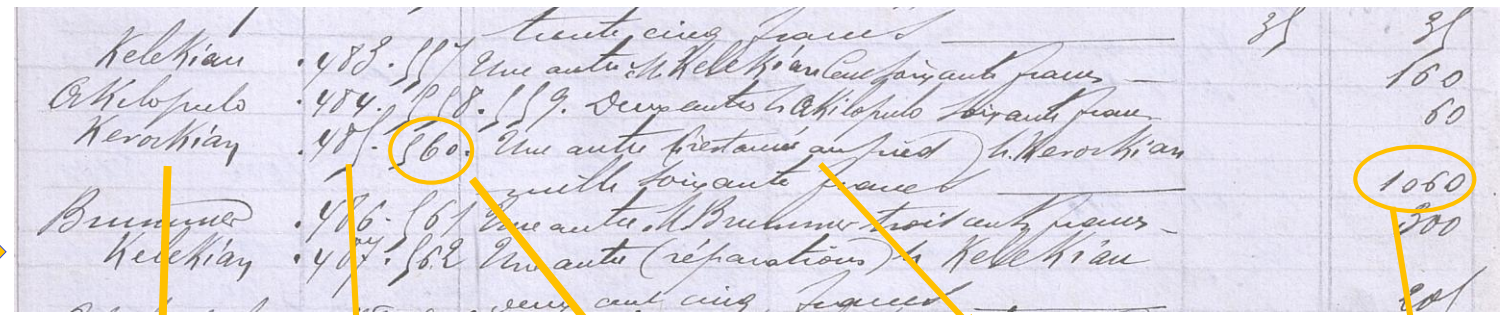 trente cinq francs 35 35
Kelekian .483. 557 Une autre. M Kelekian Cent soixante francs 160
Akilopulo .484. 558. 559. Deux autres h Akilopulo soixante francs 60
Kerockian .485. 560. Une autre ( au pied ) h. Kerockian
mille soixante francs 1060
Brummer .486. 561 Une autre. M Brummer trois cents francs 300
Kelekian .487. 562 Une autre (réparations) h Kelekian
deux cent cinq francs 205